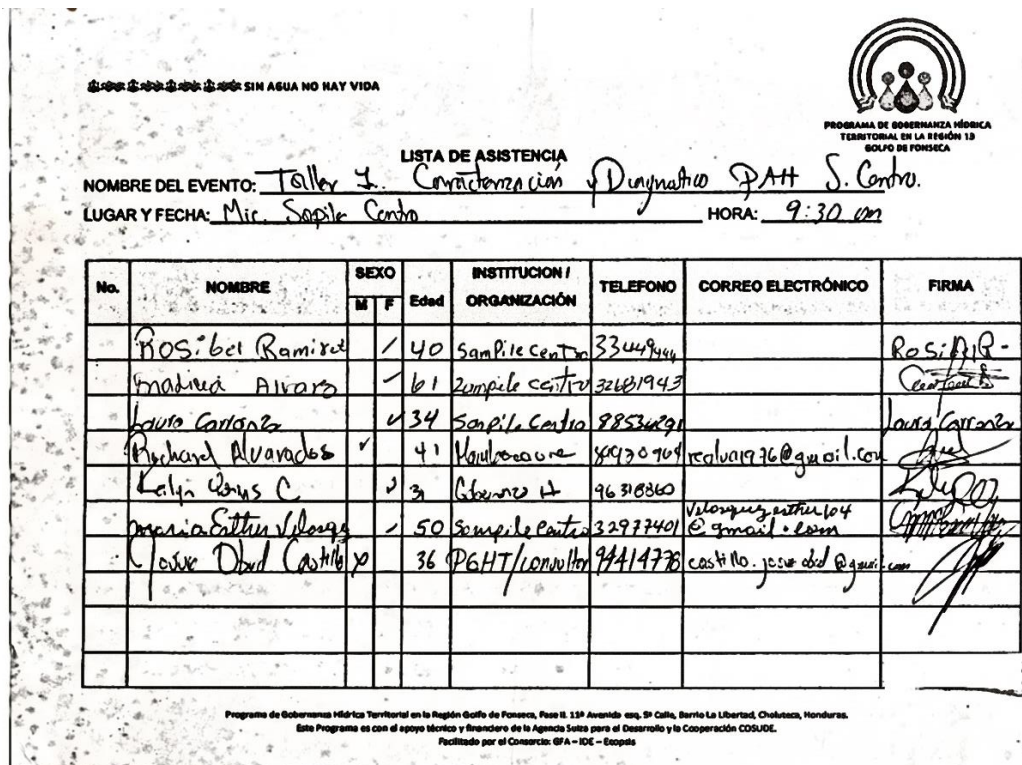 SIN AGUA NO HAY VIDA
PROGRAMA DE GOBERNANZA HÍDRICA
TERRITORIAL EN LA REGIÓN 13
GOLFO DE FONSECA
LISTA DE ASISTENCIA
NOMBRE DEL EVENTO: Taller 1. Caracterización y Diagnostico PAH S. Centro.
LUGAR Y FECHA: Mic. Sapile Centro HORA: 9:30 am
No. NOMBRE SEXO M F Edad INSTITUCION / ORGANIZACIÓN TELEFONO CORREO ELECTRÓNICO FIRMA
Rosibel Ramirez 40 Sampile centro 33449444
Alvaro 61 Zampile centro 32681943
Laura Carranza 34 Sampile Centro Laura Carranza
Alvarados 41 realva1976@gmail.com
C 31 96318860
Maria Esther Velasqz 50 Sampile centro 32977401 velasquzesther104
@gmail.com
Josue Obed Castillo 36 PGHT/consultor 94414778 castillo.josue obed@gmail.com
Programa de Gobernanza Hídrica Territorial en la Región Golfo de Fonseca, Fase II. 11ª Avenida esq. 5ª Calle, Barrio La Libertad, Choluteca, Honduras.
Este Programa es con el apoyo técnico y financiero de la Agencia Suiza para el Desarrollo y la Cooperación COSUDE.
Facilitado por el Consorcio: GFA – IDE – Ecopsis